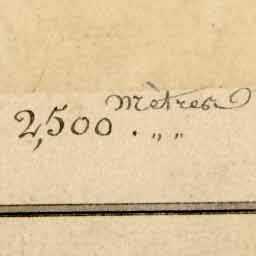 2,500 mètres . „ „